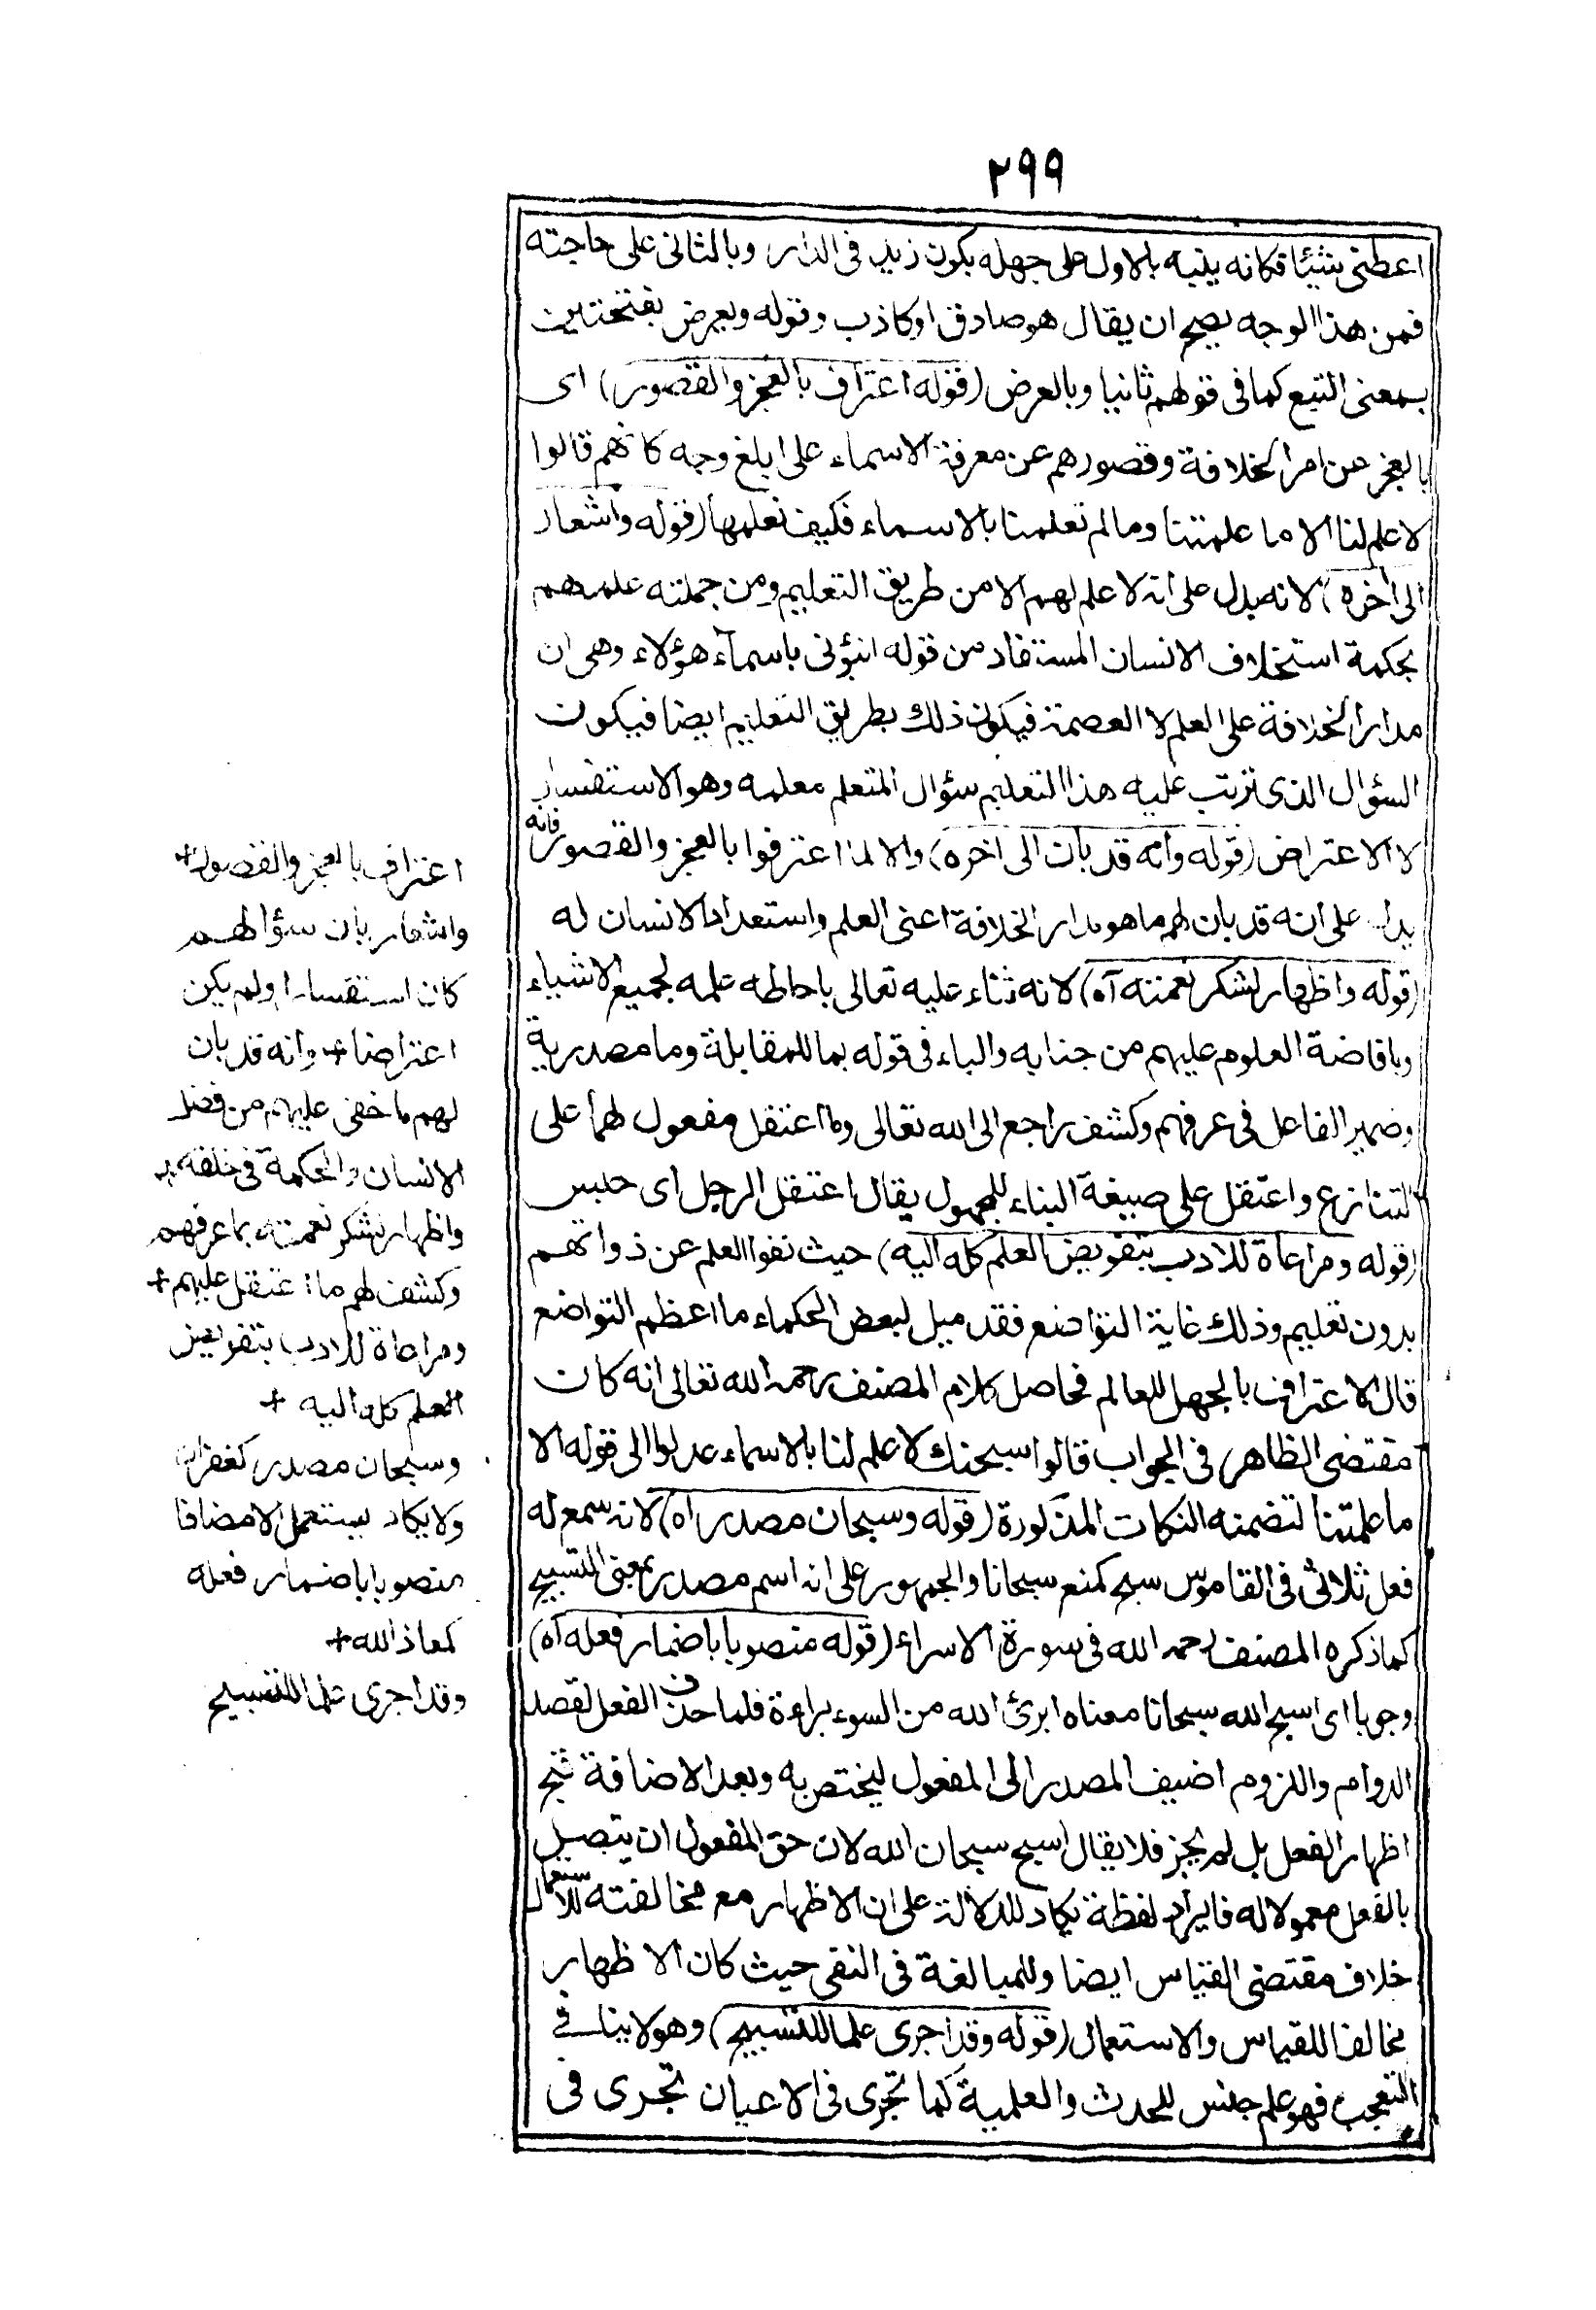 ٢٩٩
اعطنی شیئا فکانه ینبه بالاول علی جهله بکون زید فی الدار وبالثانی علی حاجته
فمن هذا الوجه یصح ان یقال هو صادق او کاذب وقوله وبعرض بفتحتین
بمعنی التبع کما فی قولهم ثانیا وبالعرض (قوله اعتراف بالعجز والقصور) ای
بالعجز عن امر الخلافة وقصورهم عن معرفة الاسماء علی ابلغ وجه کانهم قالوا
لا علم لنا الا ما علمتنا وما لم تعلمنا بالاسماء فکیف نعلمها (قوله واشعار
الی اخره) لانه یدل علی انه لا علم لهم الا من طریق التعلیم ومن جملته علمهم
بحکمة استخلاف الانسان المستفاد من قوله انبؤنی باسمآء هؤلاء وهی ان
مدار الخلافة علی العلم لا العصمة فیکون ذلك بطریق التعلیم ایضا فیکون
السؤال الذی ترتب علیه هذا التعلیم سؤال المتعلم معلمه وهو الاستفسار
لا الاعتراض (قوله وانه قد بان الی اخره) والا لما اعترفوا بالعجز والقصور فانه
یدل علی انه قد بان لهم ما هو مدار الخلافة اعنی العلم واستعداد الانسان له
(قوله واظهار لشکر نعمته آه) لانه ثناء علیه تعالی باحاطه علمه لجمیع الاشیاء
وبافاضة العلوم علیهم من جنابه والباء فی قوله بما للمقابلة وما مصدریة
وضمیر الفاعل فی عرفهم وکشف راجع الی الله تعالی وما اعتقل مفعول لهما علی
التنازع واعتقل علی صیغة البناء للمجهول یقال اعتقل الرجل ای حبس
(قوله ومراعاة للادب بتفویض العلم کله الیه) حیث نفوا العلم عن ذواتهم
بدون تعلیم وذلك غایة التواضع فقد قیل لبعض الحکماء ما اعظم التواضع
قال الاعتراف بالجهل للعالم فحاصل کلام المصنف رحمه الله تعالی انه کان
مقتضی الظاهر فی الجواب قالوا سبحنك لا علم لنا بالاسماء عدلوا الی قوله الا
ما علمتنا لتضمنه النکات المذکورة (قوله وسبحان مصدر آه) لانه سمع له
فعل ثلاثی فی القاموس سبح کمنع سبحانا والجمهور علی انه اسم مصدر بمعنی التسبیح
کما ذکره المصنف رحمه الله فی سورة الاسراء (قوله منصوبا باضمار فعله آه)
وجوبا ای اسبح الله سبحانا معناه ابرئ الله من السوء براءة فلما حذف الفعل لقصد
الدوام واللزوم اضیف المصدر الی المفعول لیختص به وبعد الاضافة قبح
اظهار الفعل بل لم یجز فلا یقال اسبح سبحان الله لان حق المفعول ان یتصل
بالفعل معمولا له فایراد لفظة یکاد للدلالة علی ان الاظهار مع مخالفته للاستعمال
خلاف مقتضی القیاس ایضا وللمبالغة فی النفی حیث کان الاظهار
مخالفا للقیاس والاستعمال (قوله وقد اجری علما للتسبیح) وهو لا ینافی
التعجب فهو علم جنس للحدث والعلمیة کما تجری فی الاعیان تجری فی
اعتراف بالعجز والقصور+
واشعار بان سؤالهم
کان استفسارا ولم یکن
اعتراضا+ وانه قد بان
لهم ما خفی علیهم من فضل
الانسان والحکمة فی خلقه+
واظهار لشکر نعمته بما عرفهم
وکشف لهم ما اعتقل علیهم+
ومراعاة للادب بتفویض
العلم کله الیه +
وسبحان مصدر کغفران
ولا یکاد یستعمل الا مضافا
منصوبا باضمار فعله
کمعاذ الله+
وقد اجری علما للتسبیح